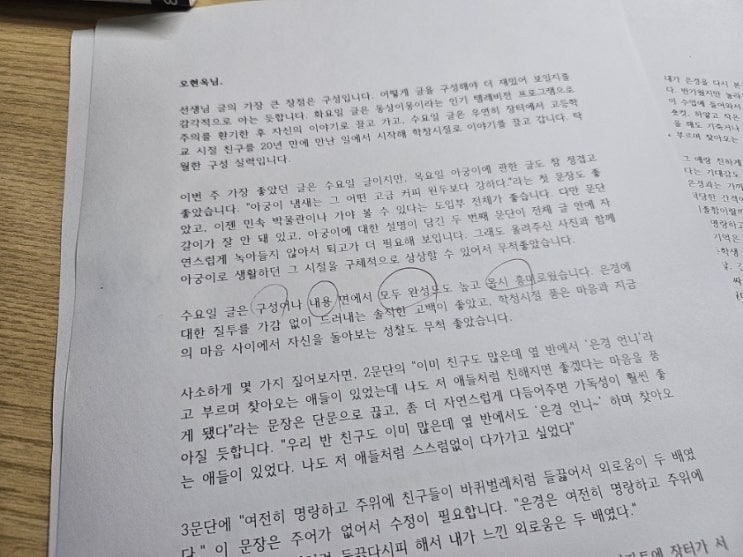 오현옥님.
선생님 글의 가장 큰 장점은 구성입니다. 어떻게 글을 구성해야 더 재밌어 보일지를
감각적으로 아는 듯합니다. 화요일 글은 동상이몽이라는 인기 텔레비전 프로그램으로
주의를 환기한 후 자신의 이야기로 끌고 가고, 수요일 글은 우연히 장터에서 고등학
교 시절 친구를 20년 만에 만난 일에서 시작해 학창시절로 이야기를 끌고 갑니다. 탁
월한 구성 실력입니다.
이번 주 가장 좋았던 글은 수요일 글이지만, 목요일 아궁이에 관한 글도 참 정겹고
좋았습니다. "아궁이 냄새는 그 어떤 고급 커피 원두보다 강하다."라는 첫 문장도 좋
았고, 이젠 민속 박물관이나 가야 볼 수 있다는 도입부 전체가 좋습니다. 다만 문단
갈이가 잘 안 돼 있고, 아궁이에 대한 설명이 담긴 두 번째 문단이 전체 글 안에 자
연스럽게 녹아들지 않아서 퇴고가 더 필요해 보입니다. 그래도 올려주신 사진과 함께
아궁이로 생활하던 그 시절을 구체적으로 상상할 수 있어서 무척좋았습니다.
수요일 글은 구성이나 내용 면에서 모두 완성도도 높고 몹시 흥미로웠습니다. 은경에
대한 질투를 가감 없이 드러내는 솔직한 고백이 좋았고, 학창시절 품은 마음과 지금
의 마음 사이에서 자신을 돌아보는 성찰도 무척 좋았습니다.
사소하게 몇 가지 짚어보자면, 2문단의 "이미 친구도 많은데 옆 반에서 '은경 언니'라
고 부르며 찾아오는 애들이 있었는데 나도 저 애들처럼 친해지면 좋겠다는 마음을 품
게 됐다"라는 문장은 단문으로 끊고, 좀 더 자연스럽게 다듬어주면 가독성이 훨씬 좋
아질 듯합니다. "우리 반 친구도 이미 많은데 옆 반에서도 '은경 언니~' 하며 찾아오
는 애들이 있었다. 나도 저 애들처럼 스스럼없이 다가가고 싶었다"
3문단에 "여전히 명랑하고 주위에 친구들이 바퀴벌레처럼 들끓어서 외로움이 두 배였
다." 이 문장은 주어가 없어서 수정이 필요합니다. "은경은 여전히 명랑하고 주위에
들끓다시피 해서 내가 느낀 외로움은 두 배였다."
장터가 서
내가 은경을 다시 본
다. 반가웠지만 놀라
이 수업에 들어와서
숏컷, 하얗고 작은
부르며 찾아오는
그 애랑 친하게
다는 기대감도
은경과는 가까
명랑하고
기억은